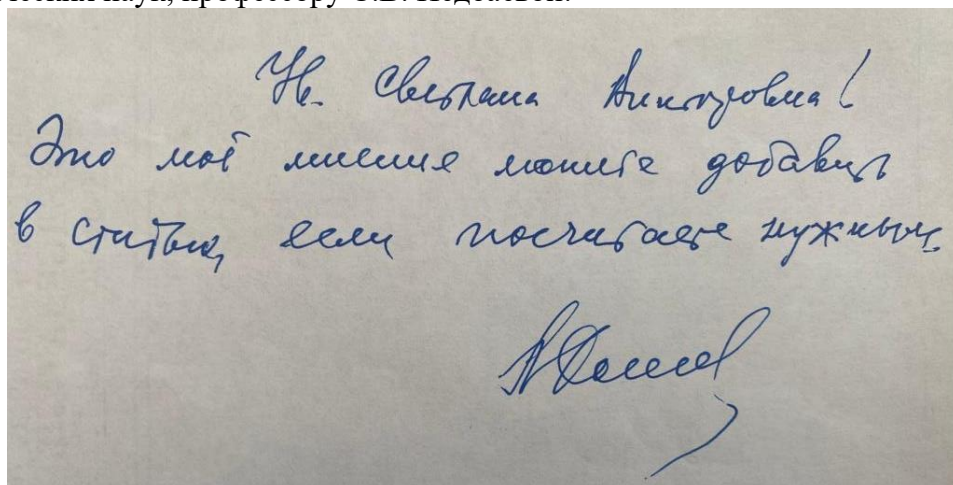 наук, профессору
Ув. Светлана Викторовна!
Это моё мнение можете добавить
в статью, если посчитаете нужным.